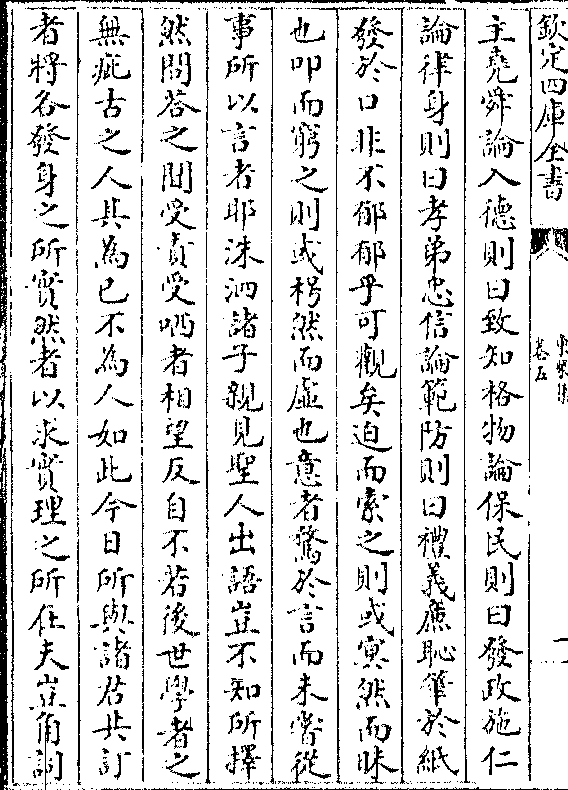 欽定四庫全書
卷五
主堯舜論入德則曰致知格物論保民則曰發政施仁
論律身則曰孝弟忠信論範防則曰禮義廉恥筆於紙
發於口非不郁郁乎可觀矣迫而索之則或冥然而昧
也叩而窮之則或枵然而虛也意者騖於言而未嘗從
事所以言者耶洙泗諸子親見聖人出語豈不知所擇
然問答之間受責受哂者相望反自不若後世學者之
無疵古之人其為已不為人如此今日所與諸君共訂
者將各發身之所實然者以求實理之所在夫豈角詞